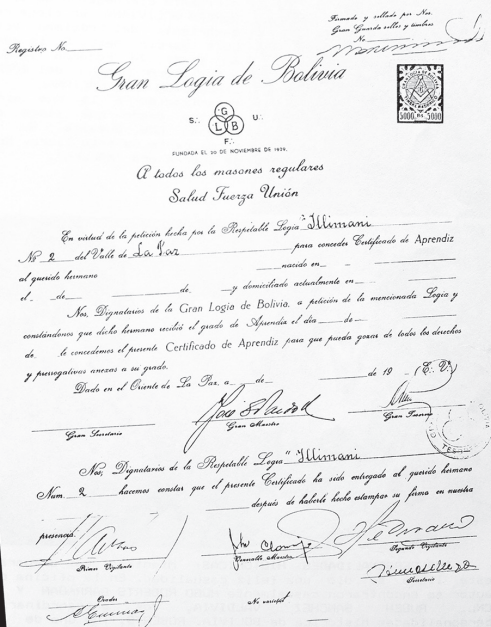 Firmado y sellado por Nos.
Gran Guarda sellos y timbres
No
Registro No.
Gran Logia de Bolivia
5000 Bs 5000
G
S∴ U∴
L B
F∴
FUNDADA EL 20 DE NOVIEMBRE DE 1929.
A todos los masones regulares
Salud Fuerza Unión
En virtud de la petición hecha por la Respetable Logia "Illimani
No 2 del Valle de La Paz para conceder Certificado de Aprendiz
al querido hermano nacido en
el de de y domiciliado actualmente en
Nos, Dignatarios de la Gran Logia de Bolivia, a petición de la mencionada Logia y
constándonos que dicho hermano recibió el grado de Aprendiz el día
de le concedemos el presente Certificado de Aprendiz para que pueda gozar de todos los derechos
y prerrogativas anexas a su grado.
Dado en el Oriente de La Paz, a de de 19 (E∴ V∴)
Gran Secretario Gran Maestro Gran Tesorero
Nos, Dignatarios de la Respetable Logia "Illimani
Num. 2 hacemos constar que el presente Certificado ha sido entregado al querido hermano
después de haberle hecho estampar su firma en nuestra
presencia.
Primer Vigilante Venerable Maestro Segundo Vigilante
Secretario
Orador No varietur